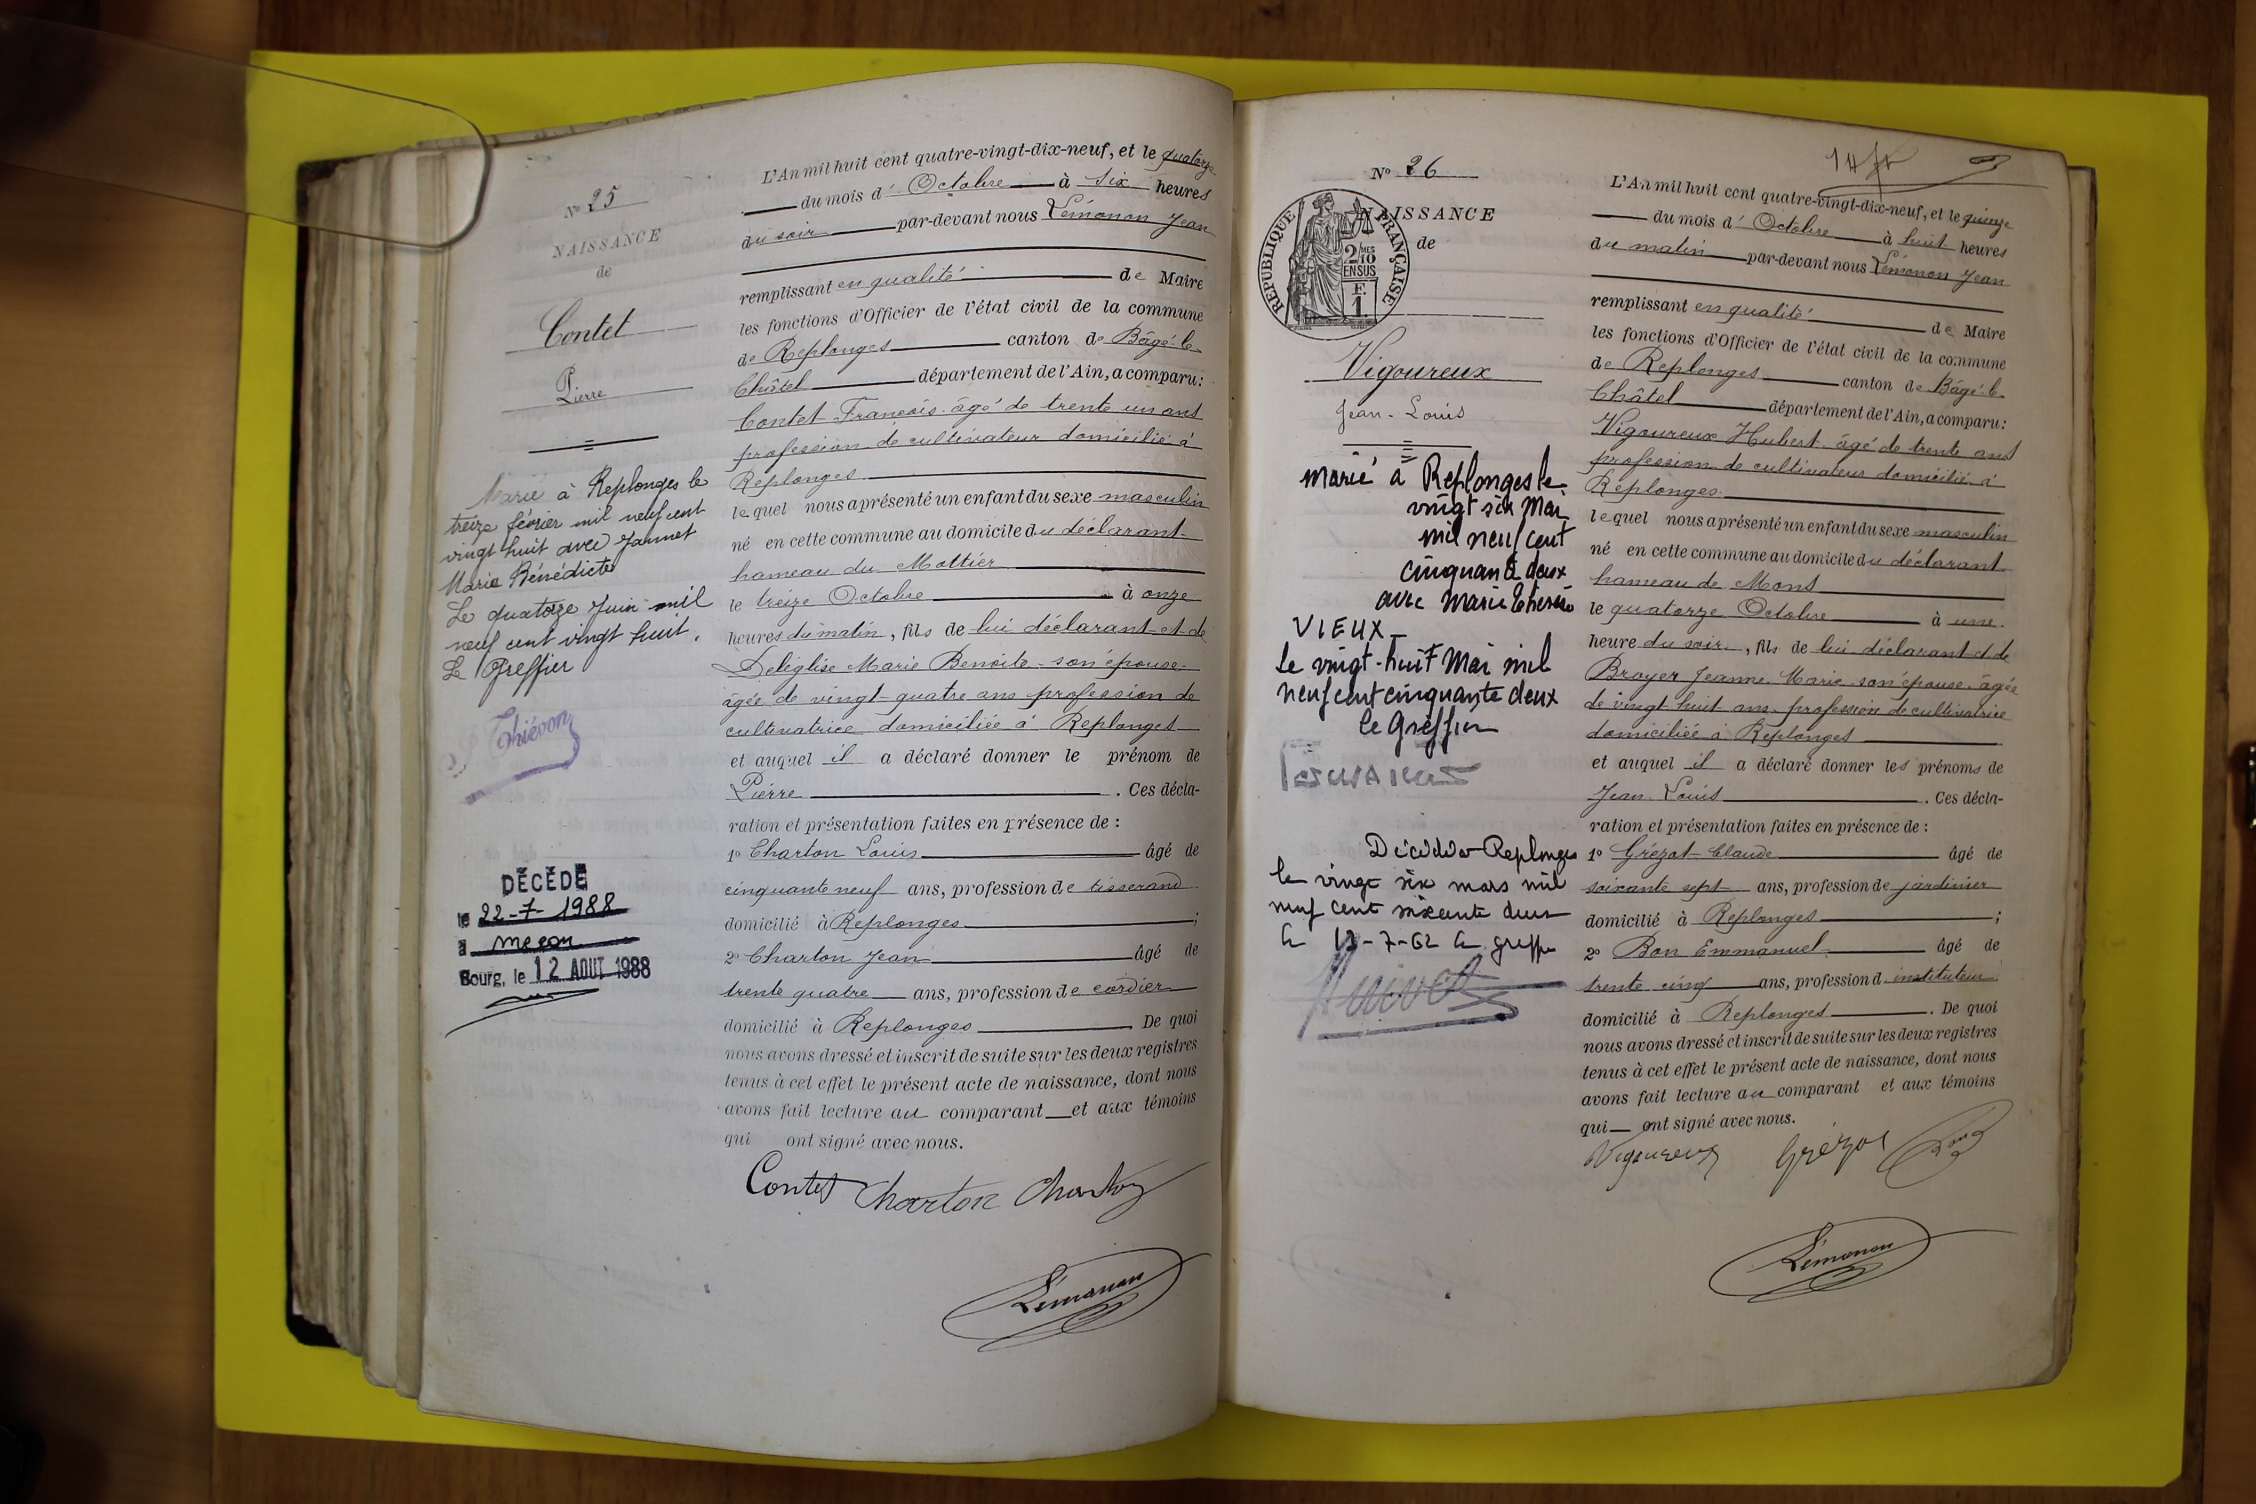 Nº 25
NAISSANCE
de
Contet
Pierre
Marié à Replonges le
treize février mil neuf cent
vingt huit avec Jannet
Marie Bénédicte
Le quatorze Juin mil
neuf cent vingt huit.
Le Greffier
Thiévon
DÉCÉDÉ
le 22-7-1988
à Macon
Bourg, le 12 AOUT 1988
L'An mil huit cent quatre-vingt-dix-neuf, et le quatorze
du mois d' Octobre à six heures
du soir par-devant nous Lémonon Jean
remplissant en qualité de Maire
les fonctions d'Officier de l'état civil de la commune
de Replonges canton de Bâgé-le-
Châtel département de l'Ain, a comparu:
Contet François âgé de trente un ans
profession de cultivateur domicilié à
Replonges
lequel nous a présenté un enfant du sexe masculin
né en cette commune au domicile du déclarant
hameau du Mottier
le treize Octobre à onze
heures du matin, fils de lui déclarant et de
Deléglise Marie Benoite son épouse
âgée de vingt-quatre ans profession de
cultivatrice domiciliée à Replonges
et auquel il a déclaré donner le prénom de
Pierre . Ces décla-
ration et présentation faites en présence de :
1º Charton Louis âgé de
cinquante neuf ans, profession de tisserand
domicilié à Replonges ;
2º Charton Jean âgé de
trente quatre ans, profession de cordier
domicilié à Replonges . De quoi
nous avons dressé et inscrit de suite sur les deux registres
tenus à cet effet le présent acte de naissance, dont nous
avons fait lecture au comparant et aux témoins
qui ont signé avec nous.
Contet Charton Charton
Lémonon
Nº 26
NAISSANCE
de
RÉPUBLIQUE FRANÇAISE
2/10 MES
EN SUS
F.
1.
Vigoureux
Jean-Louis
marié à Replonges le
vingt six Mai
mil neuf cent
cinquante deux
avec Marie Thérèse
VIEUX
Le vingt-huit Mai mil
neuf cent cinquante deux
le Greffier
Décédé à Replonges
le vingt six mars mil
neuf cent soixante deux
Le 13-7-62 Le greffier
L'An mil huit cent quatre-vingt-dix-neuf, et le quinze
du mois d' Octobre à huit heures
du matin par-devant nous Lémonon Jean
remplissant en qualité de Maire
les fonctions d'Officier de l'état civil de la commune
de Replonges canton de Bâgé-le-
Châtel département de l'Ain, a comparu:
Vigoureux Hubert âgé de trente ans
profession de cultivateur domicilié à
Replonges
lequel nous a présenté un enfant du sexe masculin
né en cette commune au domicile du déclarant
hameau de Mons
le quatorze Octobre à une
heure du soir, fils de lui déclarant et de
Broyer Jeanne Marie son épouse âgée
de vingt huit ans profession de cultivatrice
domiciliée à Replonges
et auquel il a déclaré donner les prénoms de
Jean-Louis . Ces décla-
ration et présentation faites en présence de :
1º Grézat Claude âgé de
soixante sept ans, profession de jardinier
domicilié à Replonges ;
2º Bon Emmanuel âgé de
trente cinq ans, profession d instituteur
domicilié à Replonges . De quoi
nous avons dressé et inscrit de suite sur les deux registres
tenus à cet effet le présent acte de naissance, dont nous
avons fait lecture au comparant et aux témoins
qui ont signé avec nous.
Vigoureux Grézat Bon
Lémonon